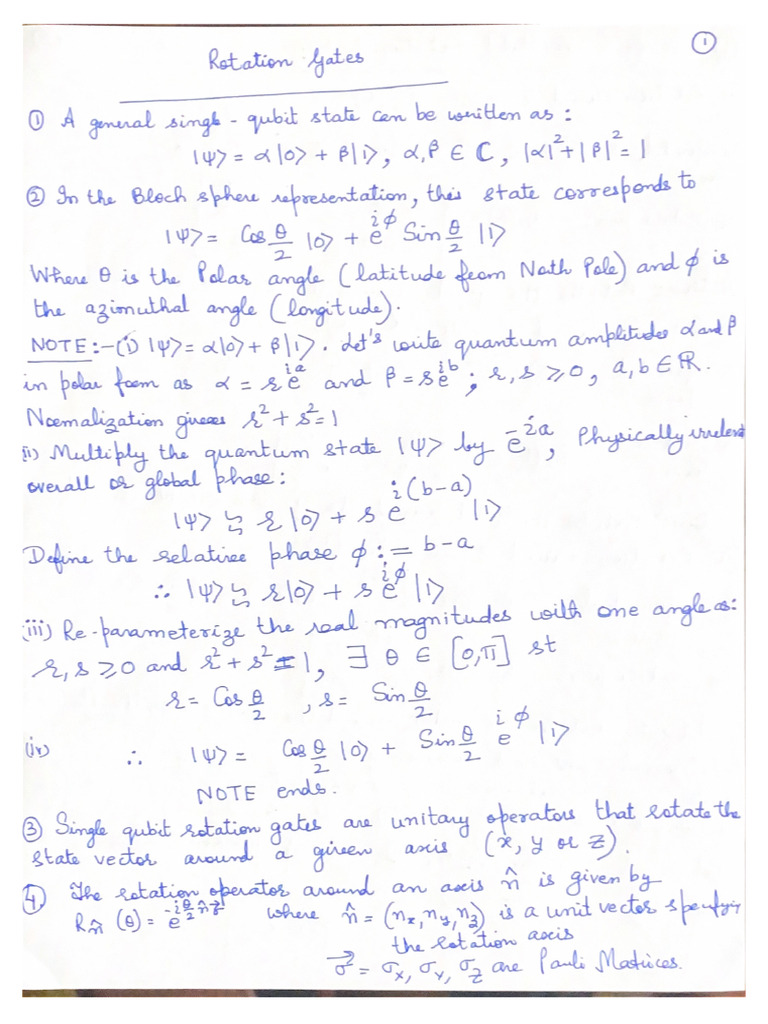 ①
Rotation Gates
① A general single - qubit state can be written as :
|ψ> = α|0> + β|1>, α,β ∈ ℂ, |α|²+|β|²=1
② In the Bloch sphere representation, this state corresponds to
|ψ> = Cos θ/2 |0> + e^{iφ} Sin θ/2 |1>
Where θ is the Polar angle (latitude from Noth Pole) and φ is
the azimuthal angle (longitude).
NOTE:-(i) |ψ> = α|0> + β|1>. Let's write quantum amplitudes α and β
in polar form as α = r e^{ia} and β = s e^{ib}; r,s ⩾ 0, a,b ∈ ℝ.
Normalization gives r²+s²=1
(ii) Multiply the quantum state |ψ> by e^{-ia}, Physically irrelevant
overall or global phase:
|ψ> ↦ r|0> + s e^{i(b-a)} |1>
Define the relative phase φ := b-a
∴ |ψ> ↦ r|0> + s e^{iφ} |1>
(iii) Re-parameterize the real magnitudes with one angle as:
r,s ⩾ 0 and r²+s²=1, ∃ θ ∈ [0,π] st
r = Cos θ/2 , s = Sin θ/2
(iv) ∴ |ψ> = Cos θ/2 |0> + Sin θ/2 e^{iφ} |1>
NOTE ends.
③ Single qubit rotation gates are unitary operators that rotate the
state vector around a given axis (x, y or z).
④ The rotation operator around an axis n̂ is given by
R_n̂ (θ) = e^{-iθ/2 n̂·σ⃗} where n̂ = (n_x, n_y, n_z) is a unit vector specifying
the rotation axis
σ⃗ = σ_X, σ_Y, σ_Z are Pauli Matrices.